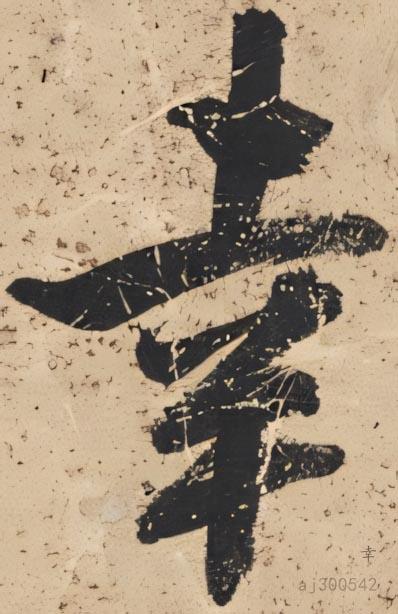 幸
幸
aj300542